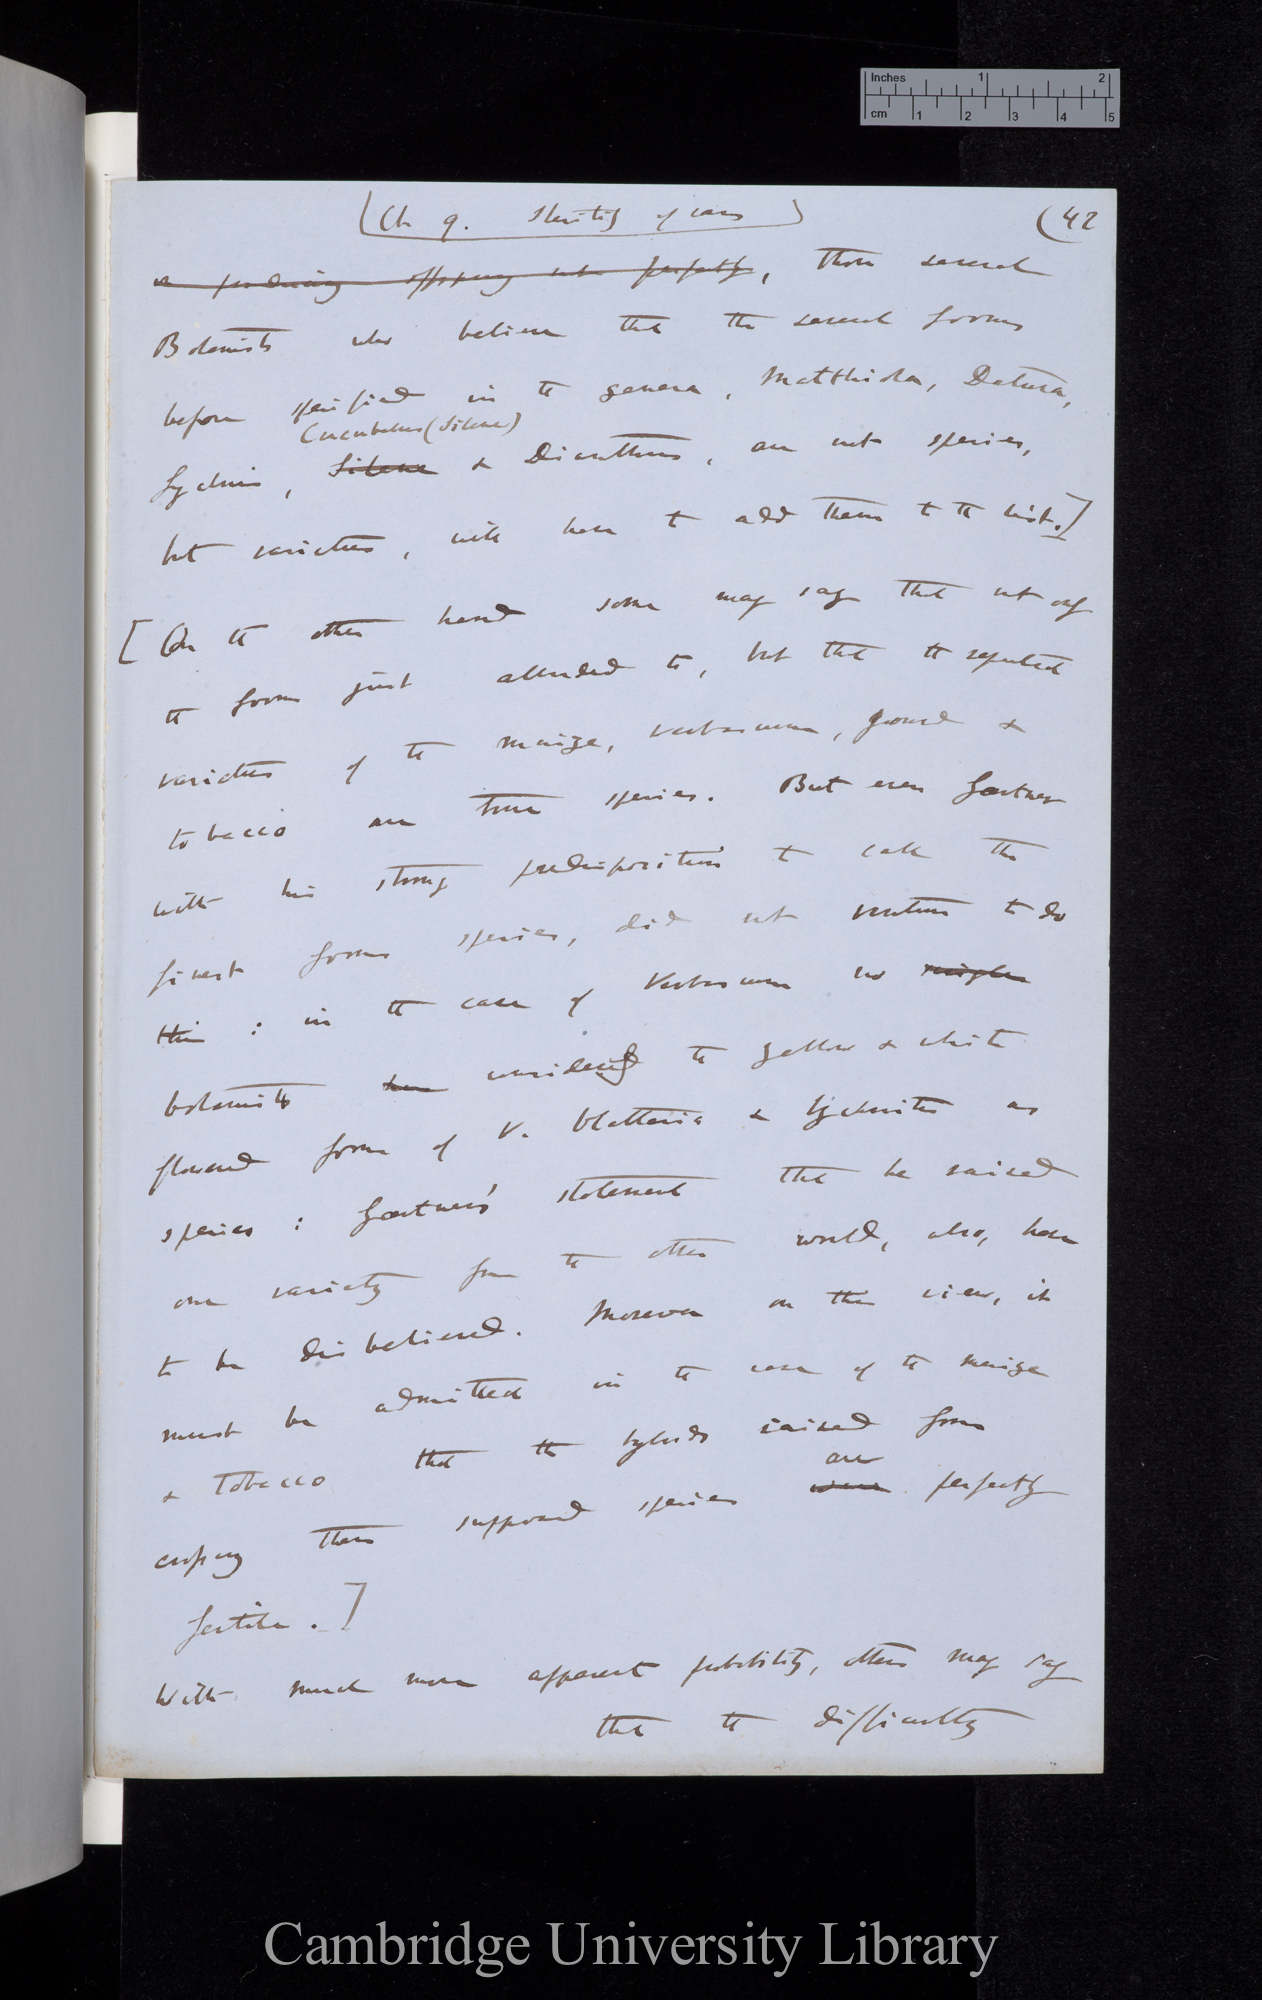 Inches 1 2
cm 1 2 3 4 5
(Ch 9. Sterility of
(42
or producing offspring perfectly, those several
Botanists who believe that the several forms
before specified in the genera, Matthiola, Datura,
Cucubalus (Silene)
Lychnis, Silene & Dianthus, are not species,
but varieties, will have to add them to the list.]
[On the other hand some may say that not only
the forms just alluded to, but that the reputed
varieties of the maize, verbascum, gourd &
tobacco are true species. But even Gærtner
with his strong predisposition to call the
finest forms species, did not venture to do
this : in the case of Verbascum no
botanists have considered the yellow & white
flowered forms of V. blattaria & lychnitis as
species : Gærtner's statement that he raised
one variety from the other would, also, have
to be disbelieved. Moreover on this view, it
must be admitted in the case of the maize
& Tobacco that the hybrids raised from
are
crossing these supposed species were perfectly
fertile.]
With much more apparent probability, others may say
that the difficulty
Cambridge University Library